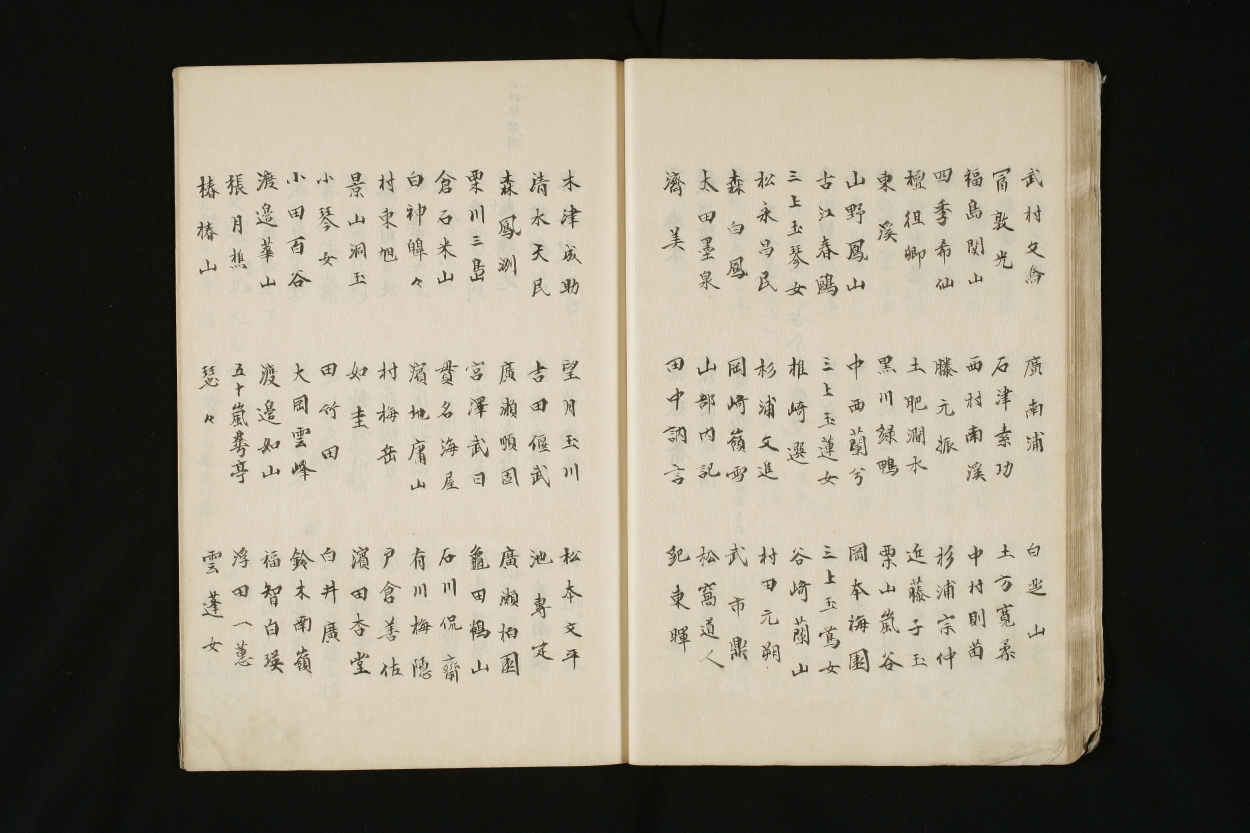 武村文喬 廣南浦 白芝山
冨敦光 石津素功 土方寛柔
福島関山 西村南溪 中村則苗
四季希仙 滕元振 杉浦宗仲
檀徂卿 土肥澗水 近藤子玉
東溪 黒川緑鴨 栗山嵐谷
山野鳳山 中西蘭兮 岡本梅園
古江春鷗 三上玉蓮女 三上玉鶯女
三上玉琴女 椎崎選 谷崎蘭山
松永昌民 杉浦文進 村田元朔
森白鳳 岡崎嶺雪 武市鼎
太田墨泉 山部内記 松窩道人
濟美 田中訥言 紀東暉
木津成助 望月玉川 松本文平
清水天民 吉田偃武 池專定
森鳳洲 廣瀬順固 廣瀬柏園
栗川三島 宮澤武曰 龜田鶴山
倉石米山 貫名海屋 石川侃齋
白神皞々 濱地庸山 有川梅隠
村東旭 村梅岳 戸倉善佐
景山洞玉 如圭 濱田杏堂
小琴女 田竹田 白井廣
小田百谷 大岡雲峰 鈴木南嶺
渡邉華山 渡邉如山 福智白瑛
張月樵 五十嵐華亭 浮田一蕙
椿椿山 瑟々 雲蓬女